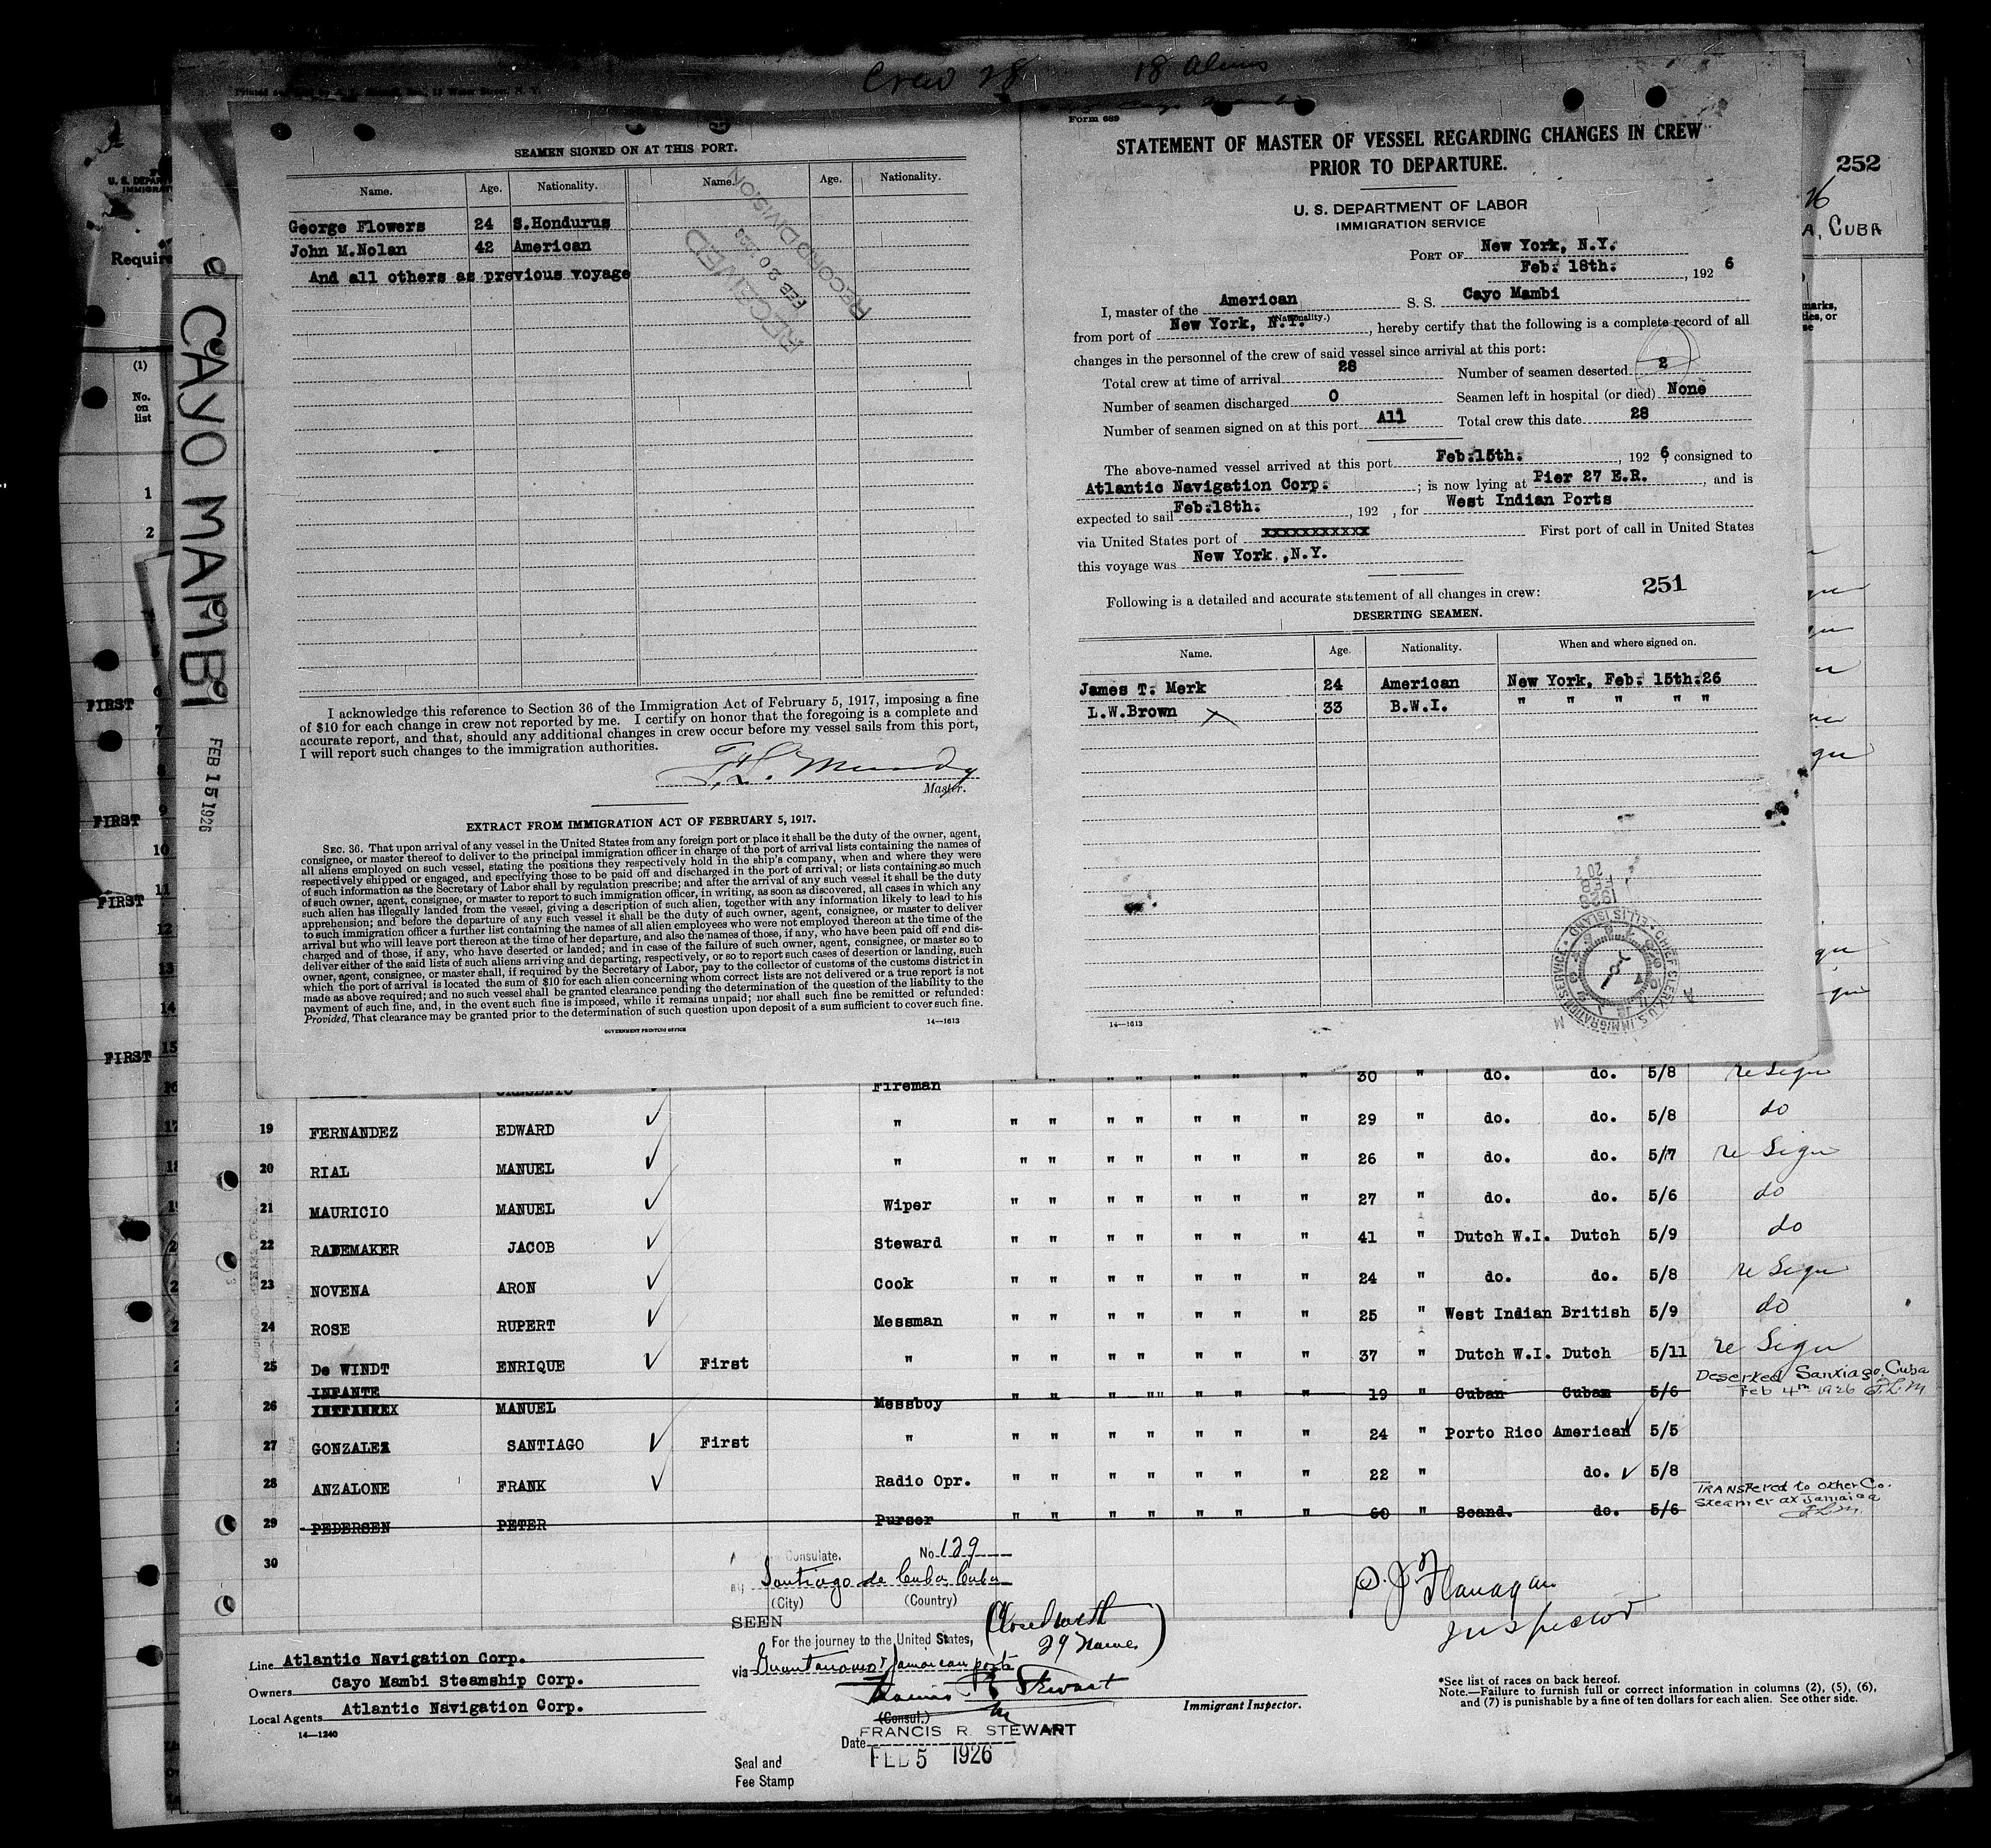 Crew 28 18 Aliens
Form 689
SEAMEN SIGNED ON AT THIS PORT.
Name. Age. Nationality. Name. Age. Nationality.
George Flowers 24 S.Hondurus
John M.Nolan 42 American
And all others as previous voyage
RECEIVED
FEB 20 1926
RECORD DIVISION
I acknowledge this reference to Section 36 of the Immigration Act of February 5, 1917, imposing a fine
of $10 for each change in crew not reported by me. I certify on honor that the foregoing is a complete and
accurate report, and that, should any additional changes in crew occur before my vessel sails from this port,
I will report such changes to the immigration authorities.
Master.
EXTRACT FROM IMMIGRATION ACT OF FEBRUARY 5, 1917.
SEC. 36. That upon arrival of any vessel in the United States from any foreign port or place it shall be the duty of the owner, agent,
consignee, or master thereof to deliver to the principal immigration officer in charge of the port of arrival lists containing the names of
all aliens employed on such vessel, stating the positions they respectively hold in the ship's company, when and where they were
respectively shipped or engaged, and specifying those to be paid off and discharged in the port of arrival; or lists containing so much
of such information as the Secretary of Labor shall by regulation prescribe; and after the arrival of any such vessel it shall be the duty
of such owner, agent, consignee, or master to report to such immigration officer, in writing, as soon as discovered, all cases in which any
such alien has illegally landed from the vessel, giving a description of such alien, together with any information likely to lead to his
apprehension; and before the departure of any such vessel it shall be the duty of such owner, agent, consignee, or master to deliver
to such immigration officer a further list containing the names of all alien employees who were not employed thereon at the time of the
arrival but who will leave port thereon at the time of her departure, and also the names of those, if any, who have been paid off and dis-
charged and of those, if any, who have deserted or landed; and in case of the failure of such owner, agent, consignee, or master so to
deliver either of the said lists of such aliens arriving and departing, respectively, or so to report such cases of desertion or landing, such
owner, agent, consignee, or master shall, if required by the Secretary of Labor, pay to the collector of customs of the customs district in
which the port of arrival is located the sum of $10 for each alien concerning whom correct lists are not delivered or a true report is not
made as above required; and no such vessel shall be granted clearance pending the determination of the question of the liability to the
payment of such fine, and, in the event such fine is imposed, while it remains unpaid; nor shall such fine be remitted or refunded:
Provided, That clearance may be granted prior to the determination of such question upon deposit of a sum sufficient to cover such fine.
GOVERNMENT PRINTING OFFICE 14—1613
STATEMENT OF MASTER OF VESSEL REGARDING CHANGES IN CREW
PRIOR TO DEPARTURE.
U. S. DEPARTMENT OF LABOR
IMMIGRATION SERVICE
PORT OF New York, N.Y.
Feb. 18th. , 192 6
I, master of the American S. S. Cayo Mambi
(Nationality.)
from port of New York, N.Y. , hereby certify that the following is a complete record of all
changes in the personnel of the crew of said vessel since arrival at this port:
Total crew at time of arrival 28 Number of seamen deserted 2
Number of seamen discharged 0 Seamen left in hospital (or died) None
Number of seamen signed on at this port All Total crew this date 28
The above-named vessel arrived at this port Feb.15th. , 192 6, consigned to
Atlantic Navigation Corp. ; is now lying at Pier 27 E.R. , and is
expected to sail Feb.18th. , 192 , for West Indian Ports
via United States port of xxxxxxxxxx First port of call in United States
this voyage was New York ,N.Y.
Following is a detailed and accurate statement of all changes in crew: 251
DESERTING SEAMEN.
Name. Age. Nationality. When and where signed on.
James T. Merk 24 American New York, Feb. 15th.26
L.W.Brown X 33 B.W.I. " " " " "
CHIEF CLERK U.S. IMMIGRATION SERVICE ELLIS ISLAND
14—1613
252
A, CUBA
CAYO MAMBI
FEB 15 1926
Require
(1)
No.
on
list
1
2
FIRST
FIRST
FIRST
FIRST
Fireman " " " " " " " 30 " do. do. 5/8 re Sign
19 FERNANDEZ EDWARD ✓ " " " " " " " " 29 " do. do. 5/8 do
20 RIAL MANUEL ✓ " " " " " " " " 26 " do. do. 5/7 re Sign
21 MAURICIO MANUEL ✓ Wiper " " " " " " " 27 " do. do. 5/6 do
22 RADEMAKER JACOB ✓ Steward " " " " " " " 41 " Dutch W.I. Dutch 5/9 do
23 NOVENA ARON ✓ Cook " " " " " " " 24 " do. do. 5/8 re Sign
24 ROSE RUPERT ✓ Messman " " " " " " " 25 " West Indian British 5/9 do
25 De WINDT ENRIQUE ✓ First " " " " " " " " 37 " Dutch W.I. Dutch 5/11 re Sign
26 INFANTE MANUEL Messboy " " " "" " " " 19 " Cuban Cuban 5/6 Deserted Santiago, Cuba
Feb 4th 1926 F.L.M
27 GONZALEZ SANTIAGO ✓ First " " " " " " " " 24 " Porto Rico American ✓ 5/5
28 ANZALONE FRANK ✓ Radio Opr. " " " " " " " 22 " do. ✓ 5/8
29 PEDERSEN PETER Purser " " " " " " " 60 " Scand. do. 5/6 TRANSFered to other Co.
Steamer at Jamaica
F.L.M.
30
Consulate. No. 129
at Santiago de Cuba, Cuba
(City) (Country)
SEEN
For the journey to the United States, (Closed with
29 Names)
via Guantanamo & Jamaican ports
(Consul.)
FRANCIS R. STEWART
Date FEB 5 1926
Seal and
Fee Stamp
Flanagan
Inspector
Immigrant Inspector.
Line Atlantic Navigation Corp.
Owners Cayo Mambi Steamship Corp.
Local Agents Atlantic Navigation Corp.
14—1240
*See list of races on back hereof.
Note.—Failure to furnish full or correct information in columns (2), (5), (6),
and (7) is punishable by a fine of ten dollars for each alien. See other side.